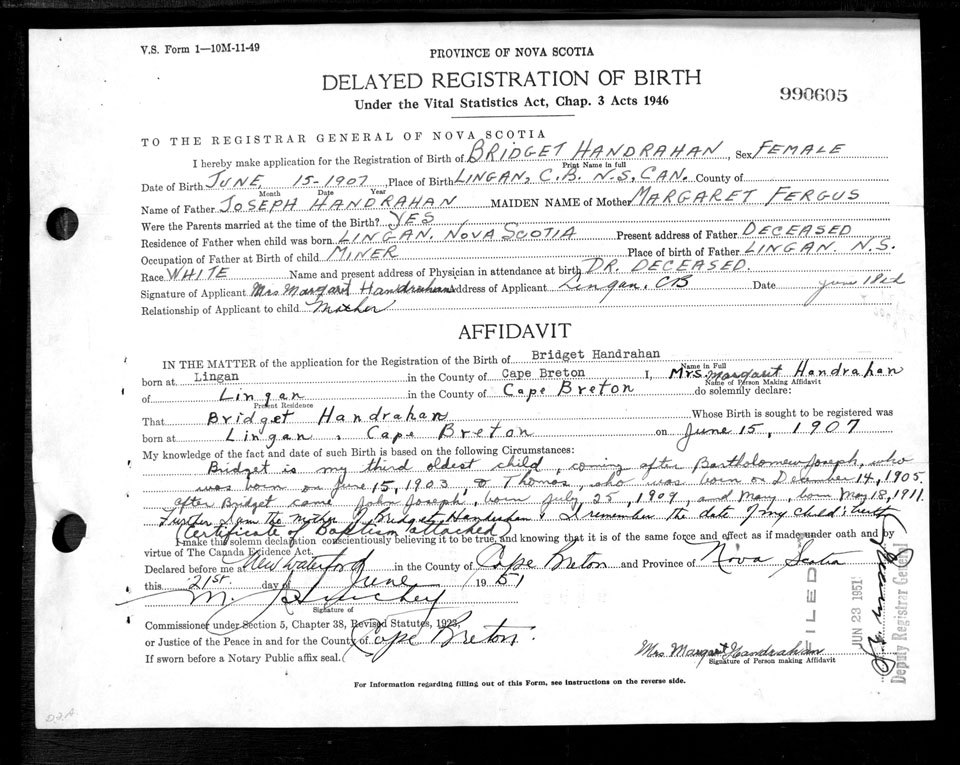 V.S. Form 1—10M-11-49
PROVINCE OF NOVA SCOTIA
DELAYED REGISTRATION OF BIRTH
Under the Vital Statistics Act, Chap. 3 Acts 1946
990605
TO THE REGISTRAR GENERAL OF NOVA SCOTIA
I hereby make application for the Registration of Birth of BRIDGET HANDRAHAN, Sex FEMALE
Print Name in full
Date of Birth JUNE, 15-1907, Place of Birth LINGAN, C.B. N.S, CAN. County of
Month Date Year
Name of Father JOSEPH HANDRAHAN MAIDEN NAME of Mother MARGARET FERGUS
Were the Parents married at the time of the Birth? YES
Residence of Father when child was born LINGAN. NOVA SCOTIA Present address of Father DECEASED
Occupation of Father at Birth of child MINER Place of birth of Father LINGAN. N.S.
Race WHITE Name and present address of Physician in attendance at birth DR. DECEASED.
Signature of Applicant Mrs Margaret Handrahan Address of Applicant Lingan, CB Date June 18
Relationship of Applicant to child Mother
AFFIDAVIT
IN THE MATTER of the application for the Registration of the Birth of Bridget Handrahan
Name in Full
born at Lingan in the County of Cape Breton I, Mrs. Margaret Handrahan
Name of Person Making Affidavit
of Lingan in the County of Cape Breton do solemnly declare:
Present Residence
That Bridget Handrahan Whose Birth is sought to be registered was
born at Lingan, Cape Breton on June 15, 1907
My knowledge of the fact and date of such Birth is based on the following Circumstances:
Bridget is my third oldest child, coming after Bartholomew Joseph, who
was born on June 15, 1903, & Thomas, who was born on December 14, 1905.
after Bridget came John Joseph, born July 25, 1909, and Mary, born May 18, 1911.
Further I am the mother of Bridget Handrahan & I remember the date of my child's birth
(Certificate of Baptism attached)
I make this solemn declaration conscientiously believing it to be true, and knowing that it is of the same force and effect as if made under oath and by
virtue of The Canada Evidence Act.
Declared before me at New Waterford in the County of Cape Breton and Province of Nova Scotia
this 21st. day of June 1951
M.
Signature of
Commissioner under Section 5, Chapter 38, Revised Statutes, 1923,
or Justice of the Peace in and for the County of Cape Breton.
If sworn before a Notary Public affix seal.
Mrs Margaret Handrahan
Signature of Person making Affidavit
FILED
JUN 23 1951
Deputy Registrar General
For Information regarding filling out of this Form, see instructions on the reverse side.